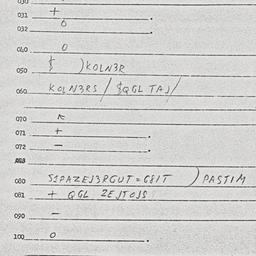 030
031 +
032 0 .
040 0
050 { )KOLN3R
060 KOLN3RS / {QGL TAJ/
070 K
071 + .
072 - .
080 S1PAZEJ3RGUT=G8IT ) PASTIM
081 + QGL ZEJTOJS
090 -
100 0 .